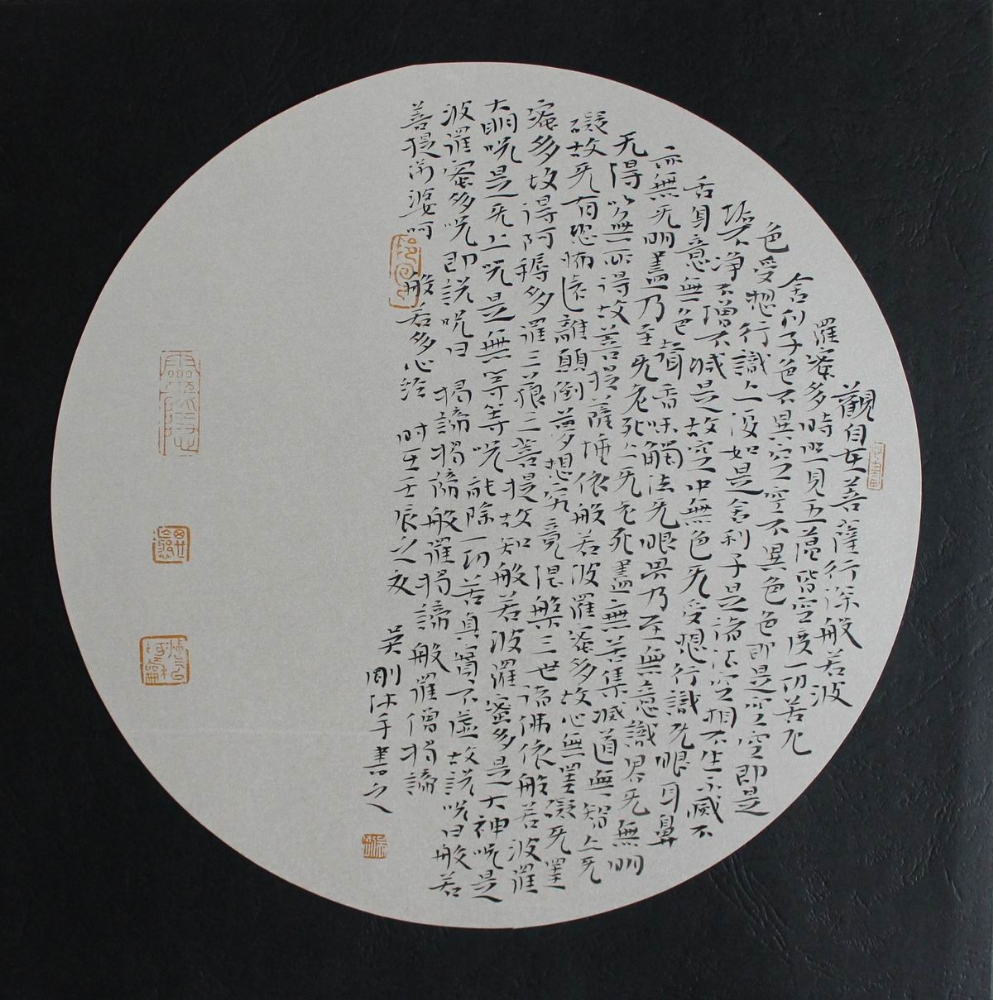 觀自在菩薩行深般若波
羅蜜多時照見五蘊皆空度一切苦厄
舍利子色不異空空不異色色即是空空即是
色受想行識亦復如是舍利子是諸法空相不生不滅不
垢不淨不增不減是故空中無色无受想行識无眼耳鼻
舌身意無色聲香味觸法无眼界乃至無意識界无無明
亦無无明盡乃至无老死亦无老死盡無苦集滅道無智亦无
无得以無所得故菩提薩埵依般若波羅蜜多故心無罣礙无罣
礙故无有恐怖遠離顛倒夢想究竟涅槃三世諸佛依般若波羅
蜜多故得阿耨多羅三藐三菩提故知般若波羅蜜多是大神咒是
大明咒是无上咒是無等等咒能除一切苦真實不虛故說咒曰般若
波羅蜜多咒即說咒曰 揭諦揭諦般羅揭諦般羅僧揭諦
菩提薩婆呵 般若多心経 时在壬辰之夏 吴剛沐手書之